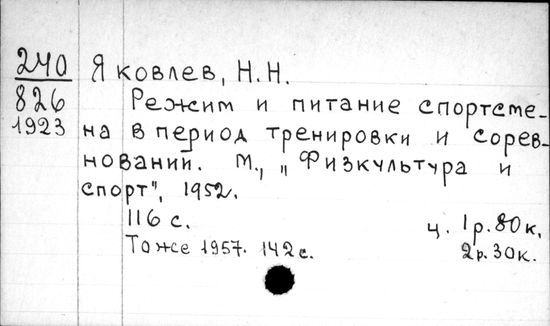 240 Яковлев, Н.Н.
826 Режим и питание спортсме-
1923 на в период тренировки и сорев-
нований. М., „Физкультура и
спорт", 1952.
116 с. ц. 1р.80к.
Тоже 1957. 142с. 2р.30к.